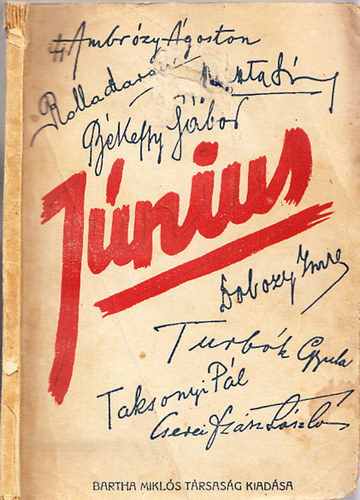 H. Ambrózy Ágoston
Rolla
Békeffy Gábor
Június
Dobozy Imre
Turbók Gyula
Taksonyi Pál
Cserei Szász László
BARTHA MIKLÓS TÁRSASÁG KIADÁSA